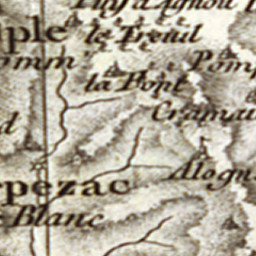 Puy d'Agnou
ple le Treuil
omm Pomp
la Pont
Cramau
d
Alogn
rpezac
Blanc